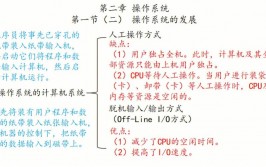 第二章 操作系统
第一节（二） 操作系统的发展
程序员将事先已穿孔的
纸带装入纸带输入机，
启动它们将程序和
数据输入计算机，然后启
动计算机运行。
人工操作方式
缺点：
（1）用户独占全机。此时，计算机及其全
部资源只能由上机用户独占。
（2）CPU等待人工操作。当用户进行装带
（卡）、卸带（卡）等人工操作时，CPU及
内存等资源是空闲的。
操作系统的计算机系统
脱机输入/输出方式
(Off-Line I/O方式)
优点：
（1）减少了CPU的空闲时间。
（2）提高了I/O速度。
先将装有用户程序和数
的纸带装入纸带输入机，
机器的控制下，把纸带
的数据输入到磁带上。